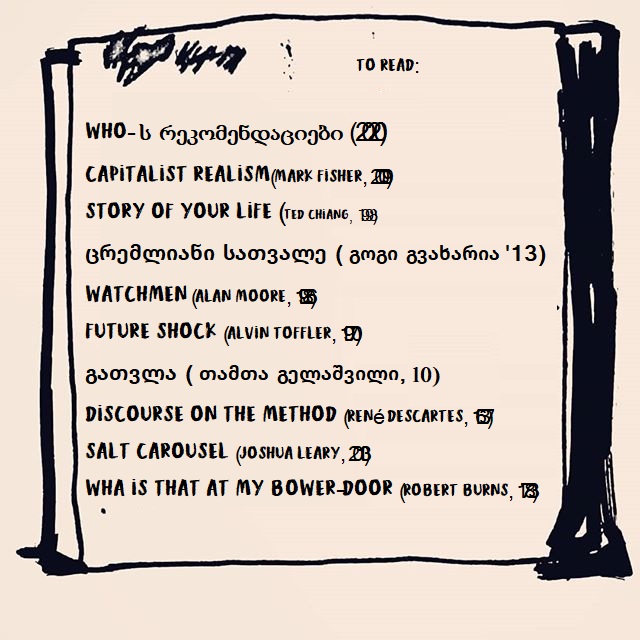 TO READ:
WHO-ს რეკომენდაციები
CAPITALIST REALISM (MARK FISHER,
STORY OF YOUR LIFE (TED CHIANG,
ცრემლიანი სათვალე ( გოგი გვახარია '13)
WATCHMEN (ALAN MOORE,
FUTURE SHOCK (ALVIN TOFFLER,
გათვლა ( თამთა გელაშვილი, 10)
DISCOURSE ON THE METHOD (RENé DESCARTES,
SALT CAROUSEL (JOSHUA LEARY,
WHA IS THAT AT MY BOWER-DOOR (ROBERT BURNS,